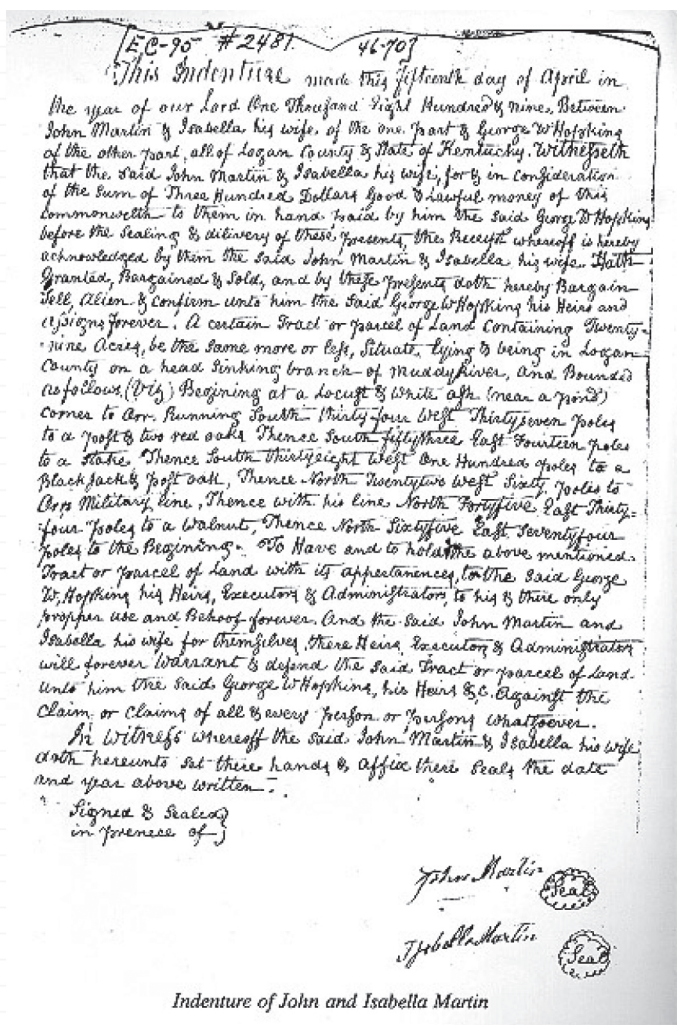 [EC-95 #2481. 46-70]
This Indenture made this fifteenth day of April in
the year of our Lord One Thousand Eight Hundred & nine, Between
John Martin & Isabella his wife, of the one part & George W Hopking
of the other part, all of Logan County & State of Kentucky. Witnesseth
that the said John Martin & Isabella his wife, for & in Consideration
of the Sum of Three Hundred Dollars Good & Lawful money of this
Commonwelth to them in hand paid by him the said George W Hopking
before the Sealing & dilivery of these presents, the Receipt whereoff is hereby
acknowledged by them the said John Martin & Isabella his wife Hath
Granted, Bargained & Sold, and by these presents doth hereby Bargain
Sell, Alien & Confirm unto him the Said George W Hopking his Heirs and
assigns forever. A certain Tract or parcel of Land Containing Twenty=
nine Acres, be the Same more or less, Situate, lying & being in Logan
County on a head Sinking branch of Muddy River, and Bounded
as follows, (Viz) Begining at a Locust & White ash (near a pond)
corner to Orr. Running South thirty four West Thirty seven poles
to a post & two red oaks Thence South fifty three East Fourteen poles
to a Stake, Thence South thirty eight West One Hundred poles to a
Black Jack & post oak, Thence North Twenty two West Sixty poles to
Orrs Military line, Thence with his line North Forty five East Thirty=
four poles to a Walnut, Thence North Sixty five East Seventy four
poles to the Begining. To Have and to hold the above mentioned
Tract or parcel of Land with its appertanances, to the Said George
W, Hopking his Heirs, Executors & Administrators, to his & there only
propper use and Behoof forever. And the Said John Martin and
Isabella his wife for themselves, there Heirs, Executors & Administrators
will forever Warrant & defend the Said Tract or parcel of Land
unto him the Said George W Hopking, his Heirs &C. Against the
Claim, or Claims of all & every person or persons whatsoever.
In Witness whereoff the Said John Martin & Isabella his wife
doth hereunto Set there hands & Affix there Seals the date
and year above written.
Signed & Sealed}
in prenece of}
John Martin Seal
Isabella Martin Seal
Indenture of John and Isabella Martin